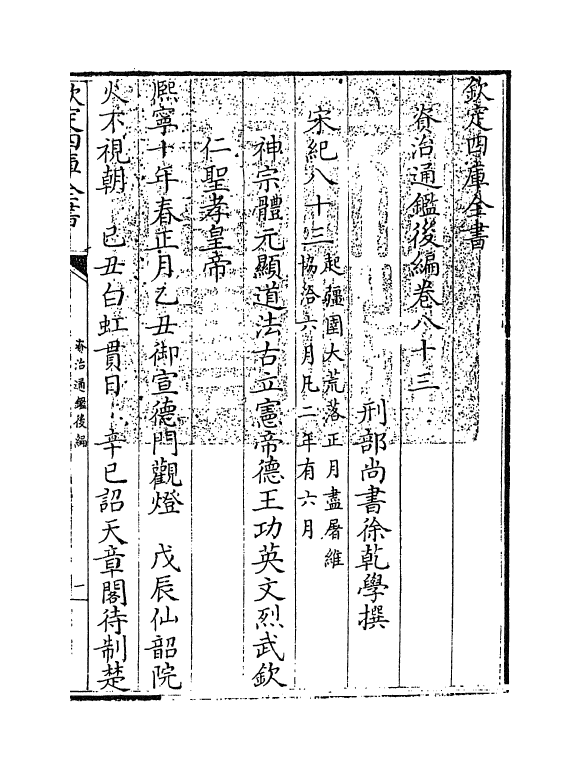 欽定四庫全書
資治通鑑後編卷八十三
刑部尚書徐乾學撰
宋紀八十三
起疆圉大荒落正月盡屠維
協洽六月凡二年有六月
神宗體元顯道法古立憲帝德王功英文烈武欽
仁聖孝皇帝
熙寧十年春正月乙丑御宣德門觀燈 戊辰仙韶院
火不視朝 己丑白虹貫日 辛巳詔天章閣待制楚
欽定四庫全書
資治通鑑後編
一